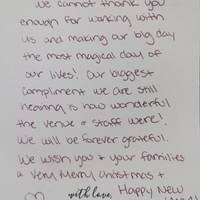 We cannot thank you
enough for working with
us and making our big day
the most magical day of
our lives! Our biggest
compliment we are still
hearing is how wonderful
the venue & staff were!
We will be forever grateful.
We wish you & your families
a very Merry Christmas +
with love,
Happy New